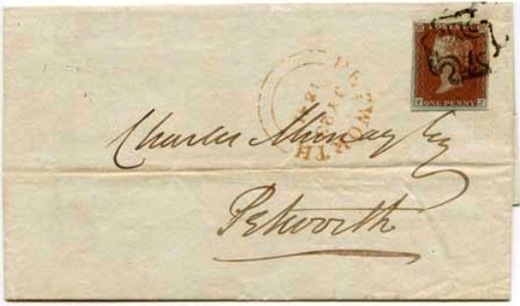 POSTAGE
ONE PENNY
PETWORTH
Charles Murray Esq
Petworth